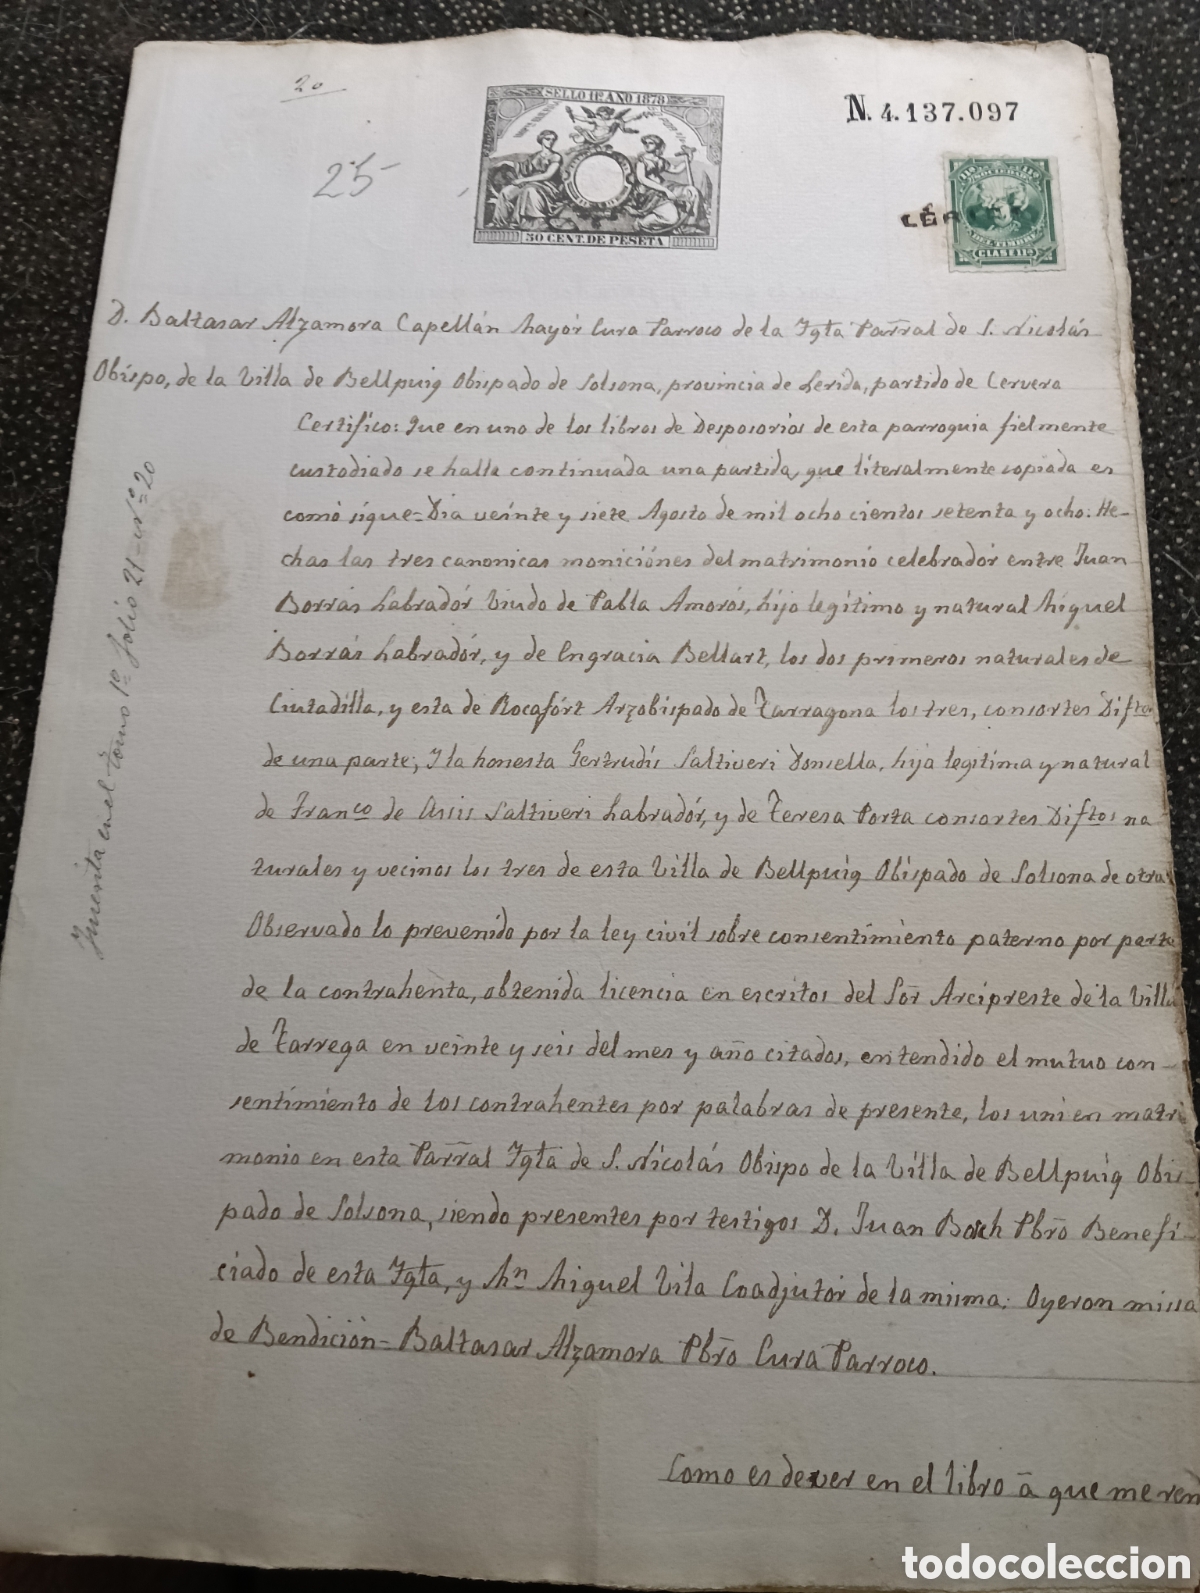 20
25
SELLO 11º AÑO 1878
50 CENT. DE PESETA
N. 4.137.097
SOCIEDAD
DEL TIMBRE
CLASE 11ª
D. Baltasar Alzamora Capellán Mayór Cura Parroco de la Ygta Parral de S. Nicolás
Obispo, de la Villa de Bellpuig Obispado de Solsona, provincia de Lerida, partido de Cervera
Certifico: Que en uno de los libros de Desposorios de esta parroquia fielmente
custodiado se halla continuada una partida, que literalmente copiada es
como sigue= Dia veinte y siete Agosto de mil ocho cientos setenta y ocho: He-
chas las tres canonicas moniciónes del matrimonio celebradór entre Juan
Borrás Labradór Viudo de Pabla Amorós, hijo legítimo y natural Miguel
Borrás Labradór, y de Engracia Bellart, los dos primeros naturales de
Ciutadilla, y esta de Rocafórt Arzobispado de Tarragona los tres, consortes Diftos
de una parte; Y la honesta Gertrudis Saltiveri Donsella, hija legitima y natural
de Franco de Asis Saltiveri Labradór, y de Teresa Porta consortes Diftos na
turales y vecinos los tres de esta Villa de Bellpuig Obispado de Solsona de otra
Observado lo prevenido por la ley civil sobre consentimiento paterno por parte
de la contrahenta, obtenida licencia en escritos del Sor Arcipreste de la Villa
de Tarrega en veinte y seis del mes y año citados, entendido el mutuo con-
sentimiento de los contrahentes por palabras de presente, los uni en matri
monio en esta Parral Ygta de S. Nicolás Obispo de la Villa de Bellpuig Obis-
pado de Solsona, siendo presentes por testigos D. Juan Bosch Pbro Benefi-
ciado de esta Ygta, y Mn Miguel Vila Coadjutór de la misma: Oyeron missa
de Bendición= Baltasar Alzamora Pbro Cura Parroco.
Como es de ver en el libro á que me rem
Ynserita en el tomo 1º folio 21= nº= 20
todocoleccion